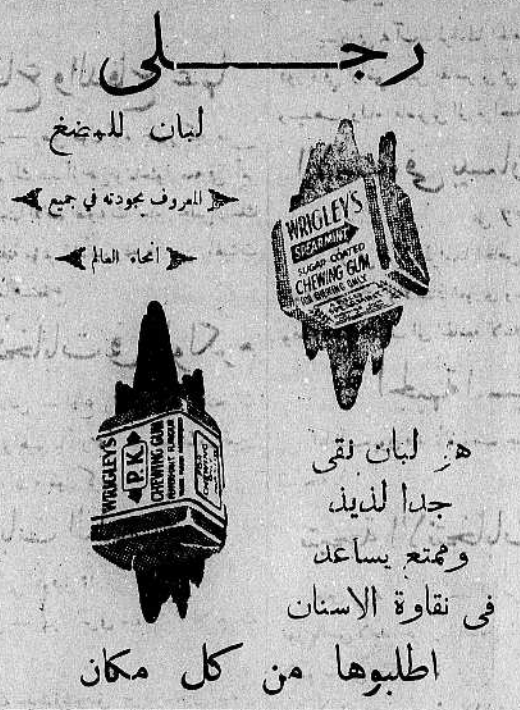 رجلى
لبان للمضغ
المعروف بجودته في جميع
أنحاء العالم
WRIGLEY'S
SPEARMINT
SUGAR COATED
CHEWING GUM
FOR EXPORT ONLY
WRIGLEY'S
P.K.
CHEWING GUM
PEPPERMINT FLAVOUR
هو لبان نقى
جدا لذيذ
وممتع يساعد
فى نقاوة الاسنان
اطلبوها من كل مكان